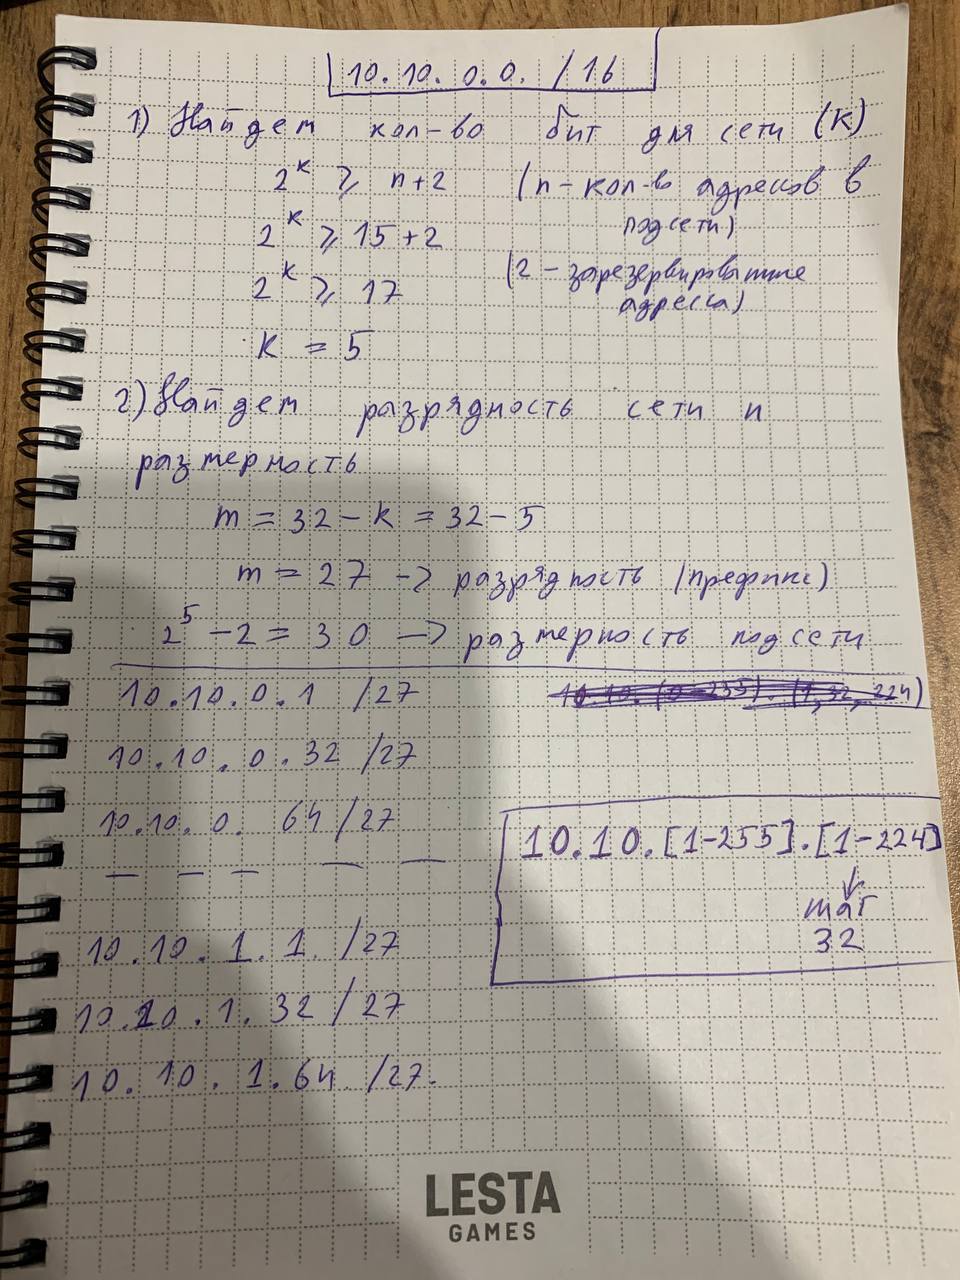 10.10.0.0. /16
1) Найдем кол-во бит для сети (К)
2^к ⩾ n+2 (n - кол-во адрессов в
подсети)
2^к ⩾ 15+2
(2 - зарезервированные
адресса)
2^к ⩾ 17
К = 5
2) Найдем разрядность сети и
размерность
m = 32 - к = 32 - 5
m = 27 -> разрядность (префикс)
2^5 - 2 = 30 -> размерность подсети
10.10.0.1 /27
10.10.0.32 /27
10.10.0. 64 /27
— — — — —
10.10.[1-255].[1-224]
шаг
32
10.10.1.1. /27
10.10.1.32 /27
10.10.1.64. /27.
LESTA
GAMES